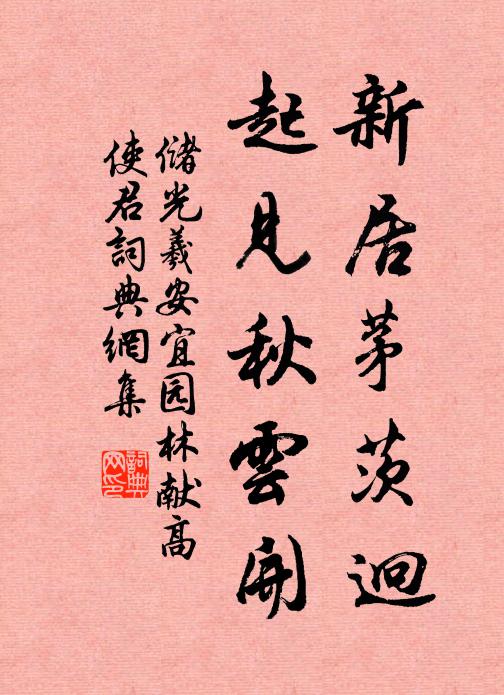 新居茅茨迥
起見秋雲開
儲光羲安宜园林献高
使君詞典網集
詞典
网印